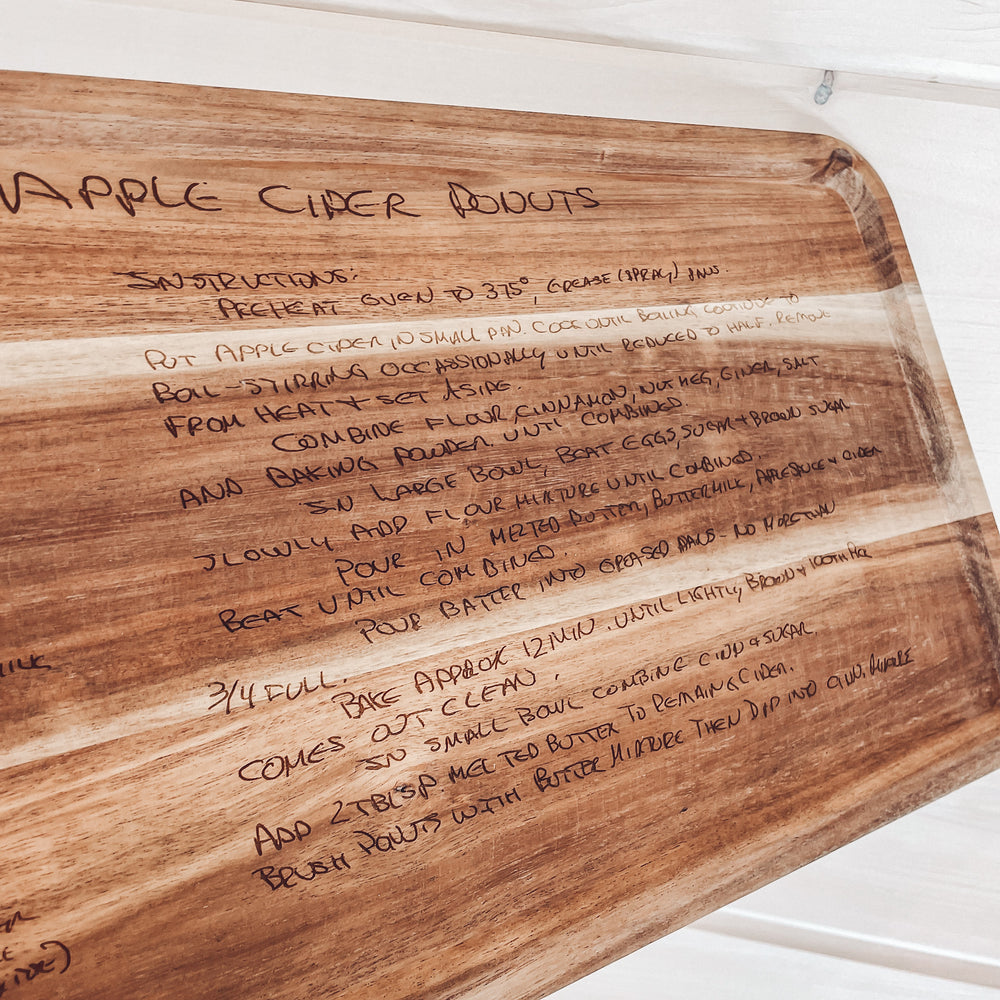 APPLE CIDER DONUTS
INSTRUCTIONS:
PREHEAT OVEN TO 375°, GREASE (SPRAY) PANS.
PUT APPLE CIDER IN SMALL PAN. COOK UNTIL BOILING CONTINUE TO
BOIL - STIRRING OCCASSIONALLY UNTIL REDUCED TO HALF. REMOVE
FROM HEAT + SET ASIDE.
COMBINE FLOUR, CINNAMON, NUTMEG, GINGER, SALT
AND BAKING POWDER. UNTIL COMBINED.
IN LARGE BOWL, BEAT EGGS, SUGAR + BROWN SUGAR
SLOWLY ADD FLOUR MIXTURE UNTIL COMBINED.
POUR IN MELTED BUTTER, BUTTERMILK, APPLESAUCE + CIDER
BEAT UNTIL COMBINED.
POUR BATTER INTO GREASED PANS - NO MORE THAN
3/4 FULL.
BAKE APPROX 12 MIN. UNTIL LIGHTLY BROWN + TOOTHPICK
COMES OUT CLEAN.
IN SMALL BOWL COMBINE CINN + SUGAR.
ADD 2 TBLSP. MELTED BUTTER TO REMAINING CIDER.
BRUSH DONUTS WITH BUTTER MIXTURE THEN DIP INTO CINN. MIXTURE